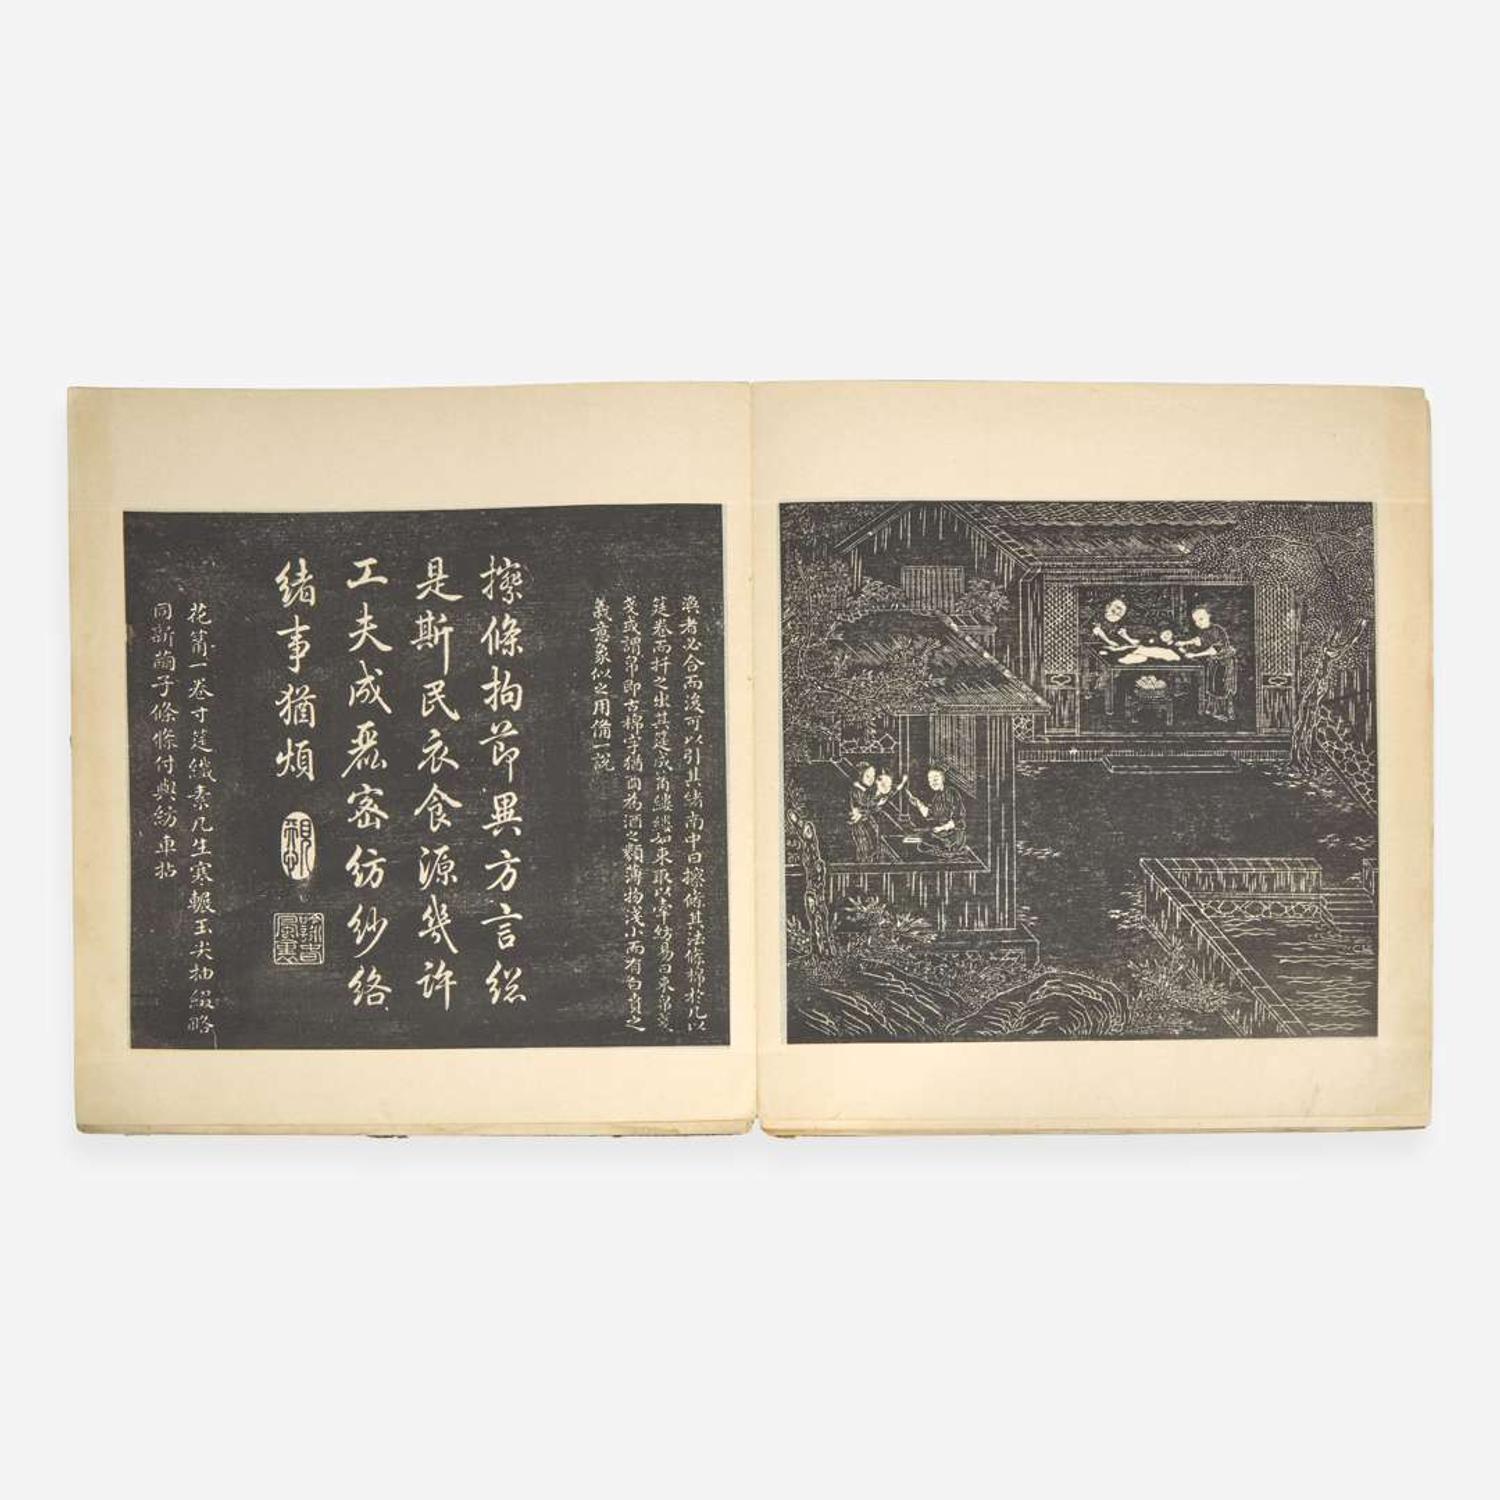 渙者必合而後可以引其緒南中曰擦條其法條棉於几以
筳卷而扞之出其筳成筩縷縷如束取以牽紡易曰束帛戔
戔或謂帛即古棉字猶酉為酒之類薄物淺小而有白賁之
義意象似之用備一說
擦條拘節異方言總
是斯民衣食源幾許
工夫成严密紡紗絡
緒事猶煩
花筩一卷寸筳纖素几生寒輾玉尖抽綴略
同新繭子條條付與紡車拈